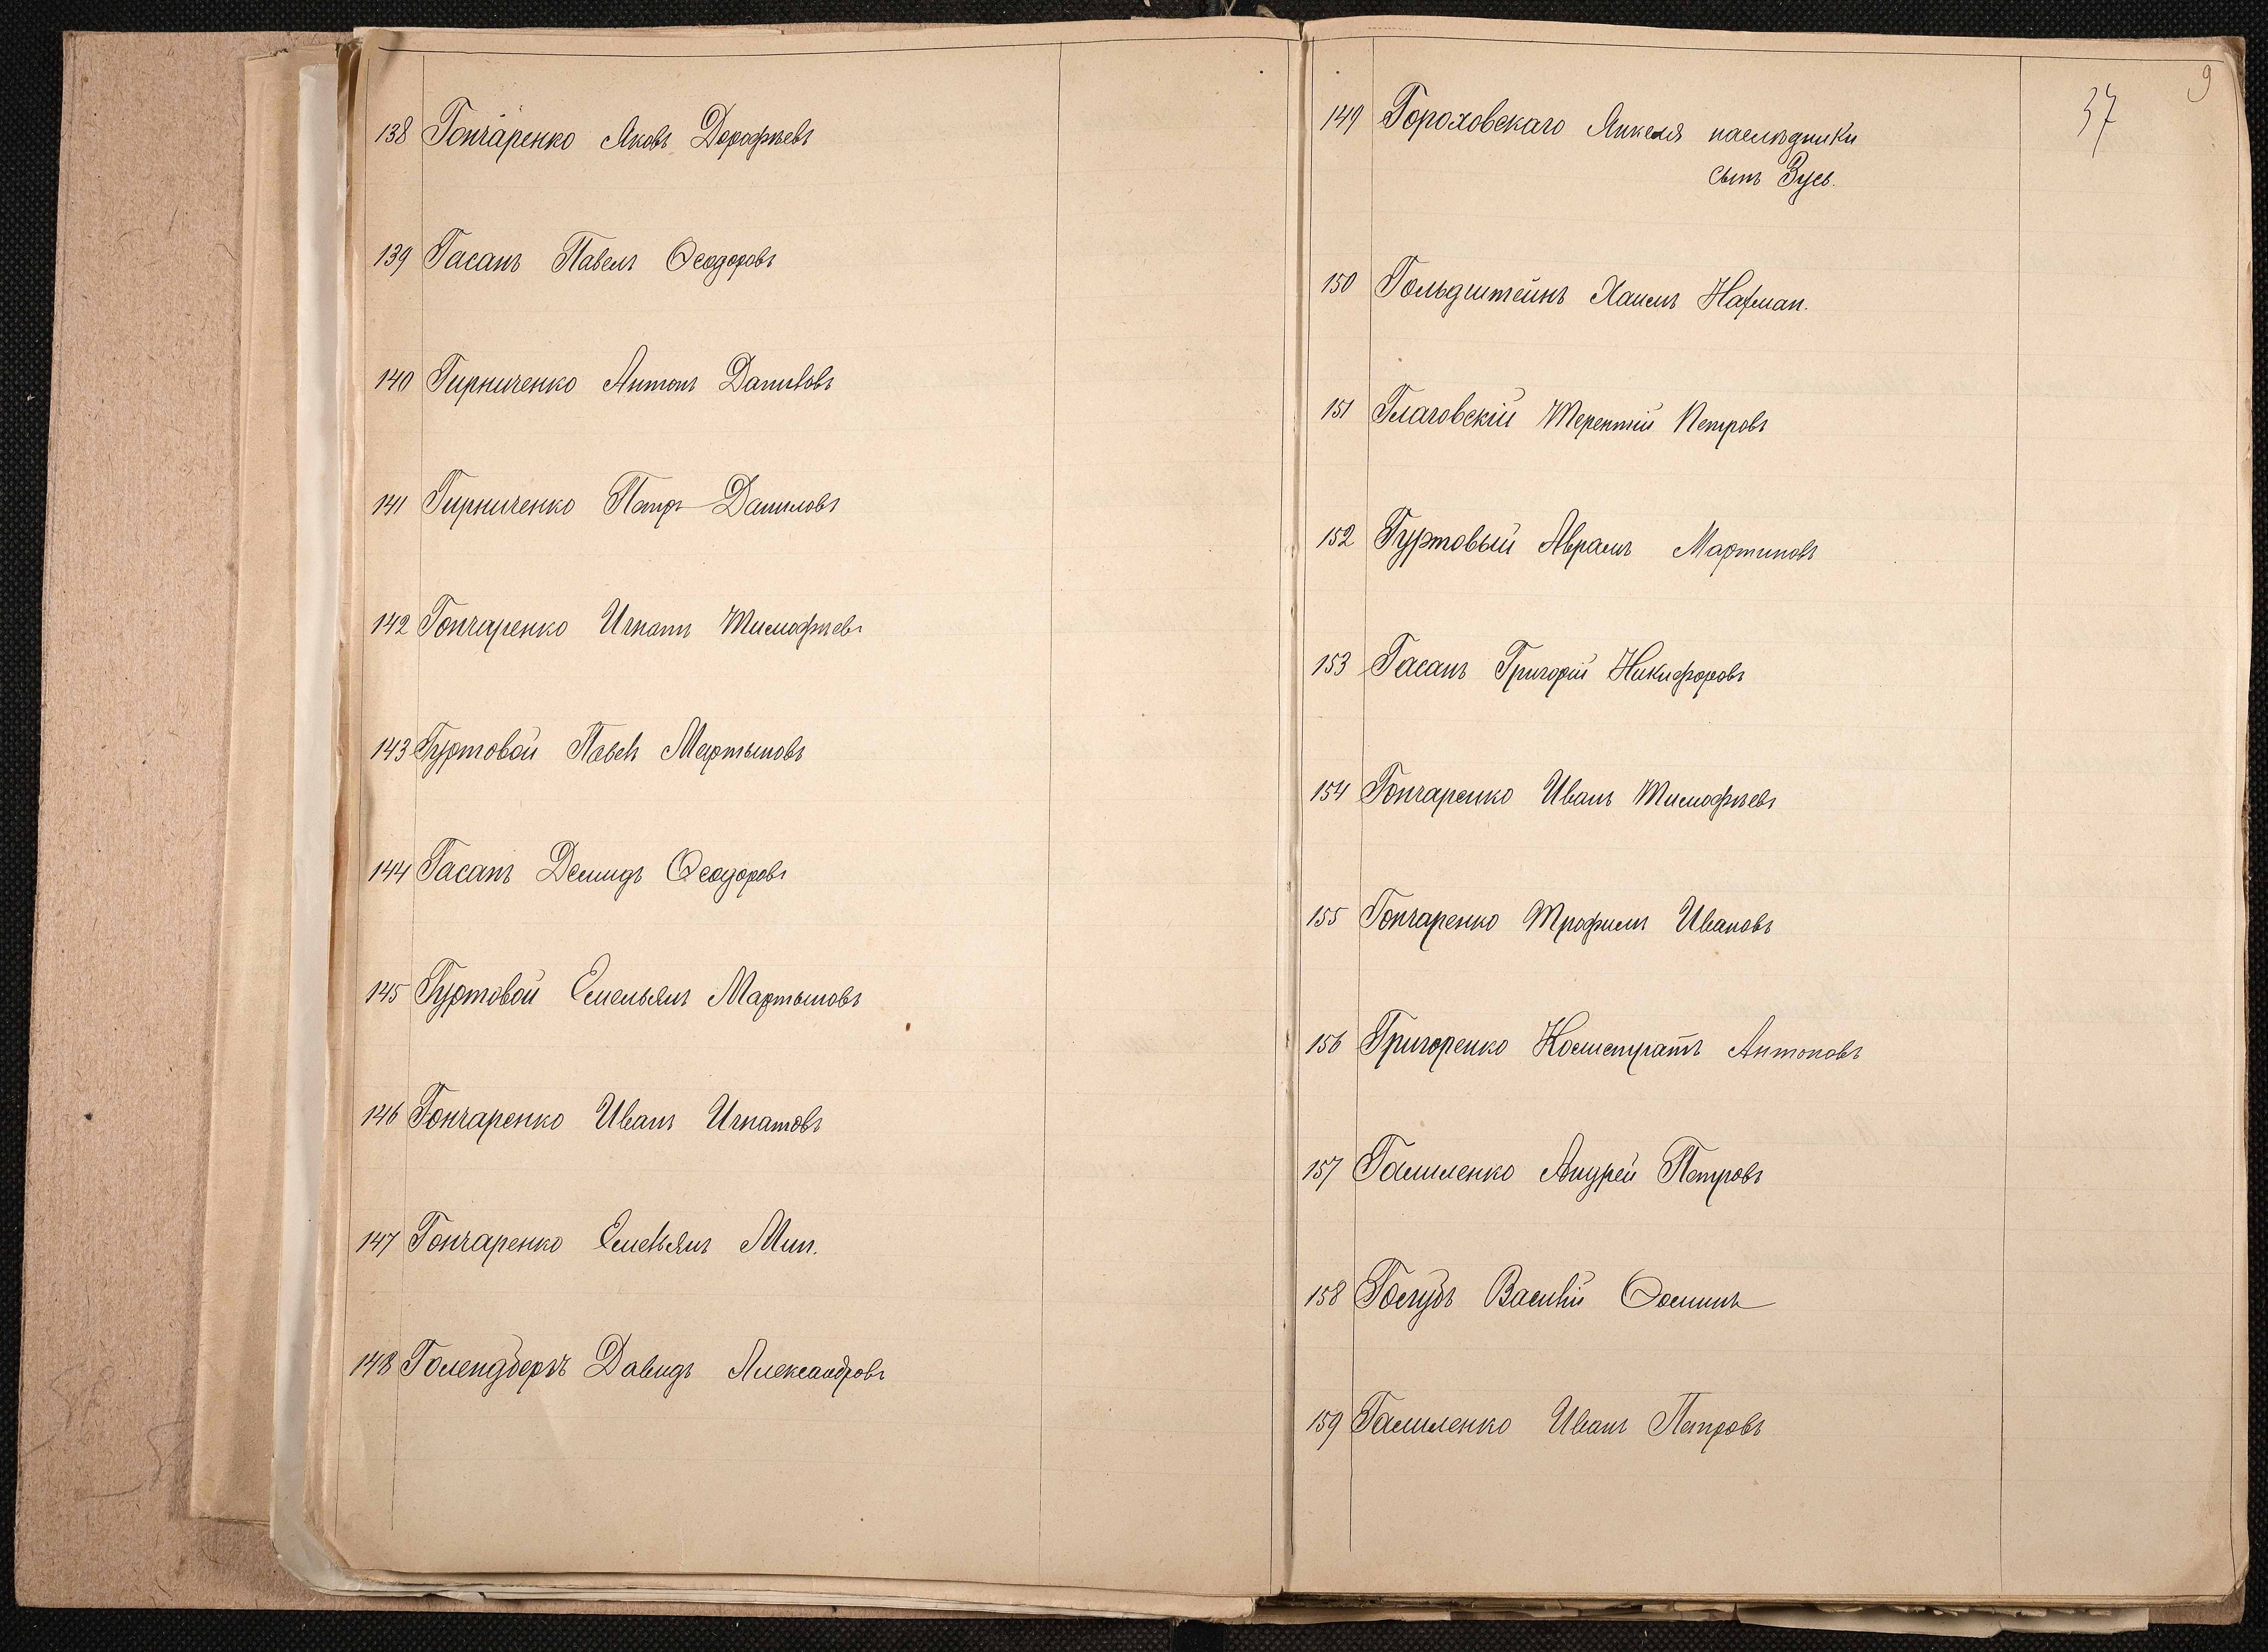 138 Гончаренко Яковъ Дорофѣевъ
139 Гасанъ Павелъ Ѳеодоровъ
140 Гирниченко Антонъ Даниловъ
141 Гирниченко Петръ Даниловъ
142 Гончаренко Игнатъ Тимофѣевъ
143 Гуртовой Павелъ Мартыновъ
144 Гасанъ Демидъ Ѳеодоровъ
145 Гуртовой Емельянъ Мартыновъ
146 Гончаренко Иванъ Игнатовъ
147 Гончаренко Емельянъ Мин.
148 Голендберъ Давидъ Александровъ
9
37
149 Гороховскаго Янкеля наслѣдники
сынъ Зусь.
150 Гольдштейнъ Хаимъ Нахман.
151 Глаговскій Терентій Петровъ
152 Гуртовый Аврамъ Мартиновъ
153 Гасанъ Григорій Никифоровъ
154 Гончаренко Иванъ Тимофѣевъ
155 Гончаренко Трофимъ Ивановъ
156 Григоренко Каллистратъ Антоновъ
157 Андрей Петровъ
158 Голубъ Василій Ѳоминъ
159 Иванъ Петровъ